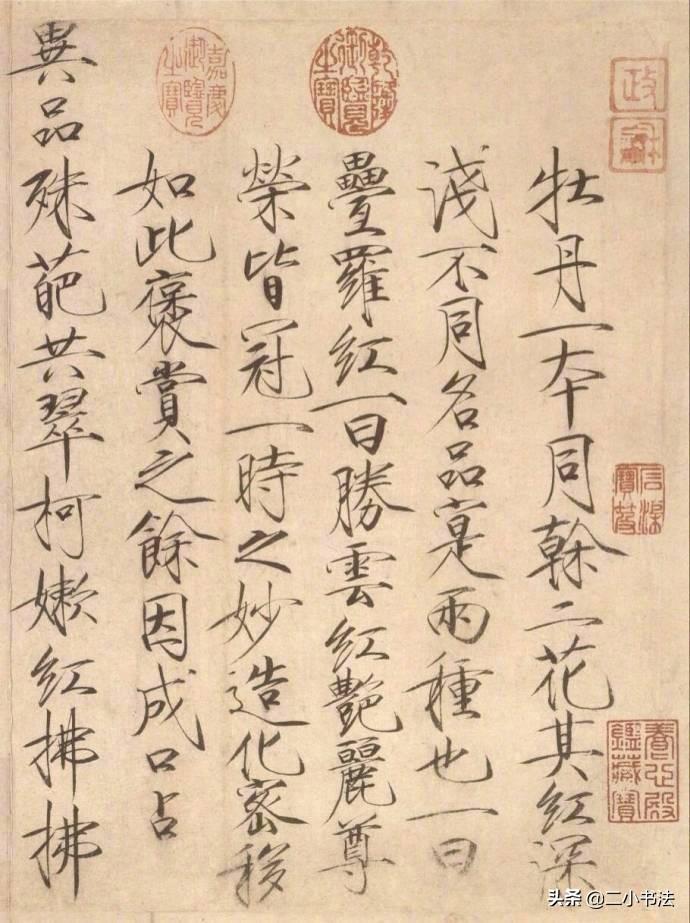 牡丹一本同榦二花其紅深
淺不同名品寔兩種也一曰
疊羅紅一曰勝雲紅艷麗尊
榮皆冠一時之妙造化密移
如此褒賞之餘因成口占
異品殊葩共翠柯嫩紅拂拂
政龢
養心殿鑑藏寶
乾隆御覽之寶
嘉慶御覽之寶
头条 @二小书法